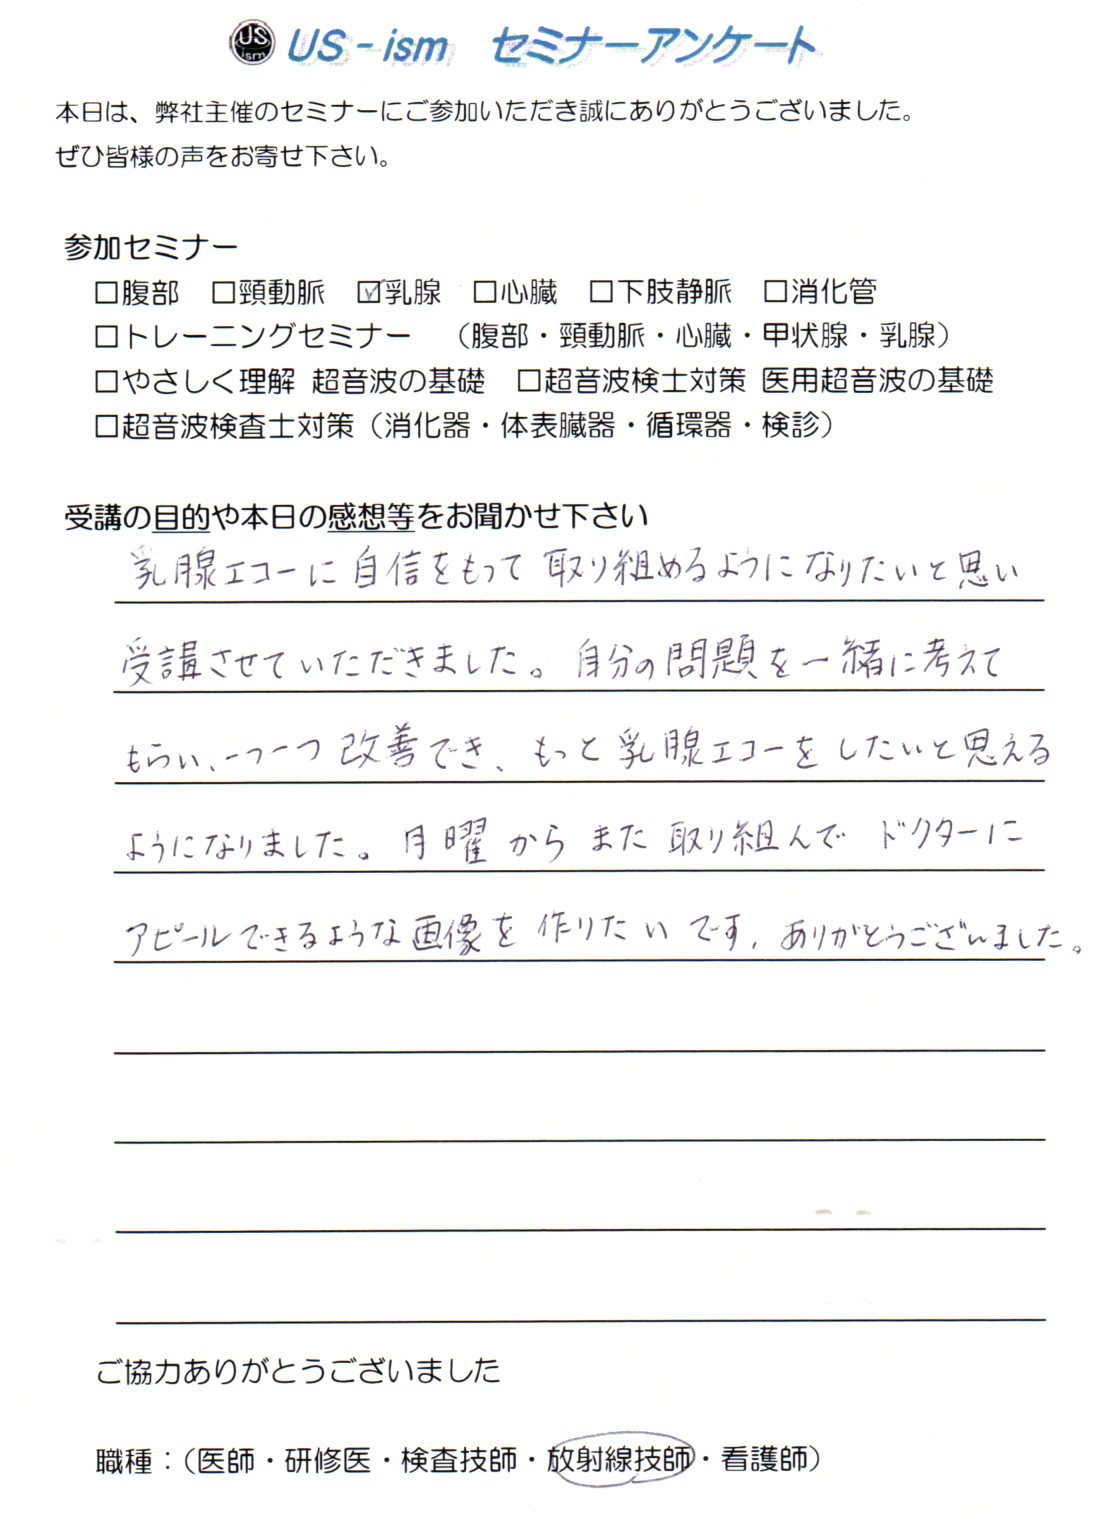 US ism US-ism セミナーアンケート
本日は、弊社主催のセミナーにご参加いただき誠にありがとうございました。
ぜひ皆様の声をお寄せ下さい。
参加セミナー
□腹部 □頸動脈 ☑乳腺 □心臓 □下肢静脈 □消化管
□トレーニングセミナー （腹部・頸動脈・心臓・甲状腺・乳腺）
□やさしく理解 超音波の基礎 □超音波検士対策 医用超音波の基礎
□超音波検査士対策（消化器・体表臓器・循環器・検診）
受講の目的や本日の感想等をお聞かせ下さい
乳腺エコーに自信をもって取り組めるようになりたいと思い
受講させていただきました。自分の問題を一緒に考えて
もらい、一つ一つ改善でき、もっと乳腺エコーをしたいと思える
ようになりました。月曜からまた取り組んでドクターに
アピールできるような画像を作りたいです。ありがとうございました。
ご協力ありがとうございました
職種：（医師・研修医・検査技師・放射線技師・看護師）